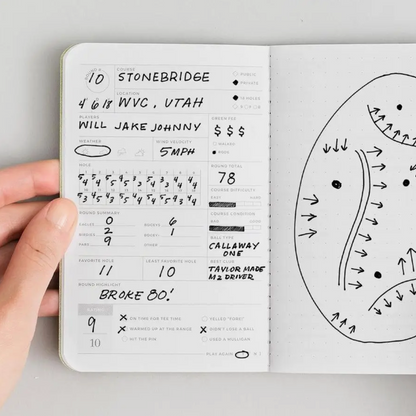 10
COURSE
STONEBRIDGE
PUBLIC
PRIVATE
LOCATION
4 6 18 WVC, UTAH
18 HOLES
PLAYERS
WILL JAKE JOHNNY
GREEN FEE
$ $ $
WEATHER
WIND VELOCITY
5MPH
WALKED
RODE
HOLE
ROUND TOTAL
78
COURSE DIFFICULTY
ROUND SUMMARY
COURSE CONDITION
EAGLES 0
BOGEYS 6
BIRDIES 2
1
PARS 9
OTHER
BALL TYPE
CALLAWAY
ONE
FAVORITE HOLE
LEAST FAVORITE HOLE
BEST CLUB
11
10
TAYLOR MADE
M2 DRIVER
ROUND HIGHLIGHT
BROKE 80!
9
10
X ON TIME FOR TEE TIME
YELLED "FORE!"
X WARMED UP AT THE RANGE
X DIDN'T LOSE A BALL
HIT THE PIN
USED A MULLIGAN
PLAY AGAIN